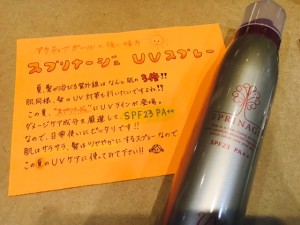 アクティブガールの強い味方
スプリナージュ UVスプレー
夏、髪の浴びる紫外線はなんと肌の3倍!!
肌同様、髪のUV対策も行いたいですよね!?
この夏、"スプリナージュ"にUVラインが登場。
ダメージケア成分を厳選して、SPF23 PA++
なので、日常使いにピッタリです!!
肌はサラサラ、髪はツヤやかにするスプレーなので
この夏のUVケアに使ってみて下さい!!
SPRINAGE
SPF23 PA++